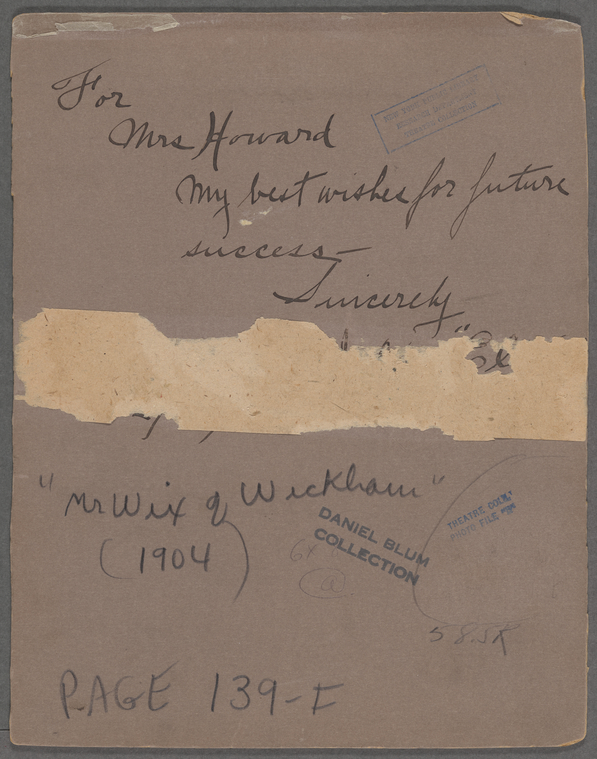 For
Mrs Howard
My best wishes for future
success—
Sincerely
"Mr Wix of Wickham"
(1904)
DANIEL BLUM
COLLECTION
THEATRE COLL'
PHOTO FILE
6x
a
585R
PAGE 139-I